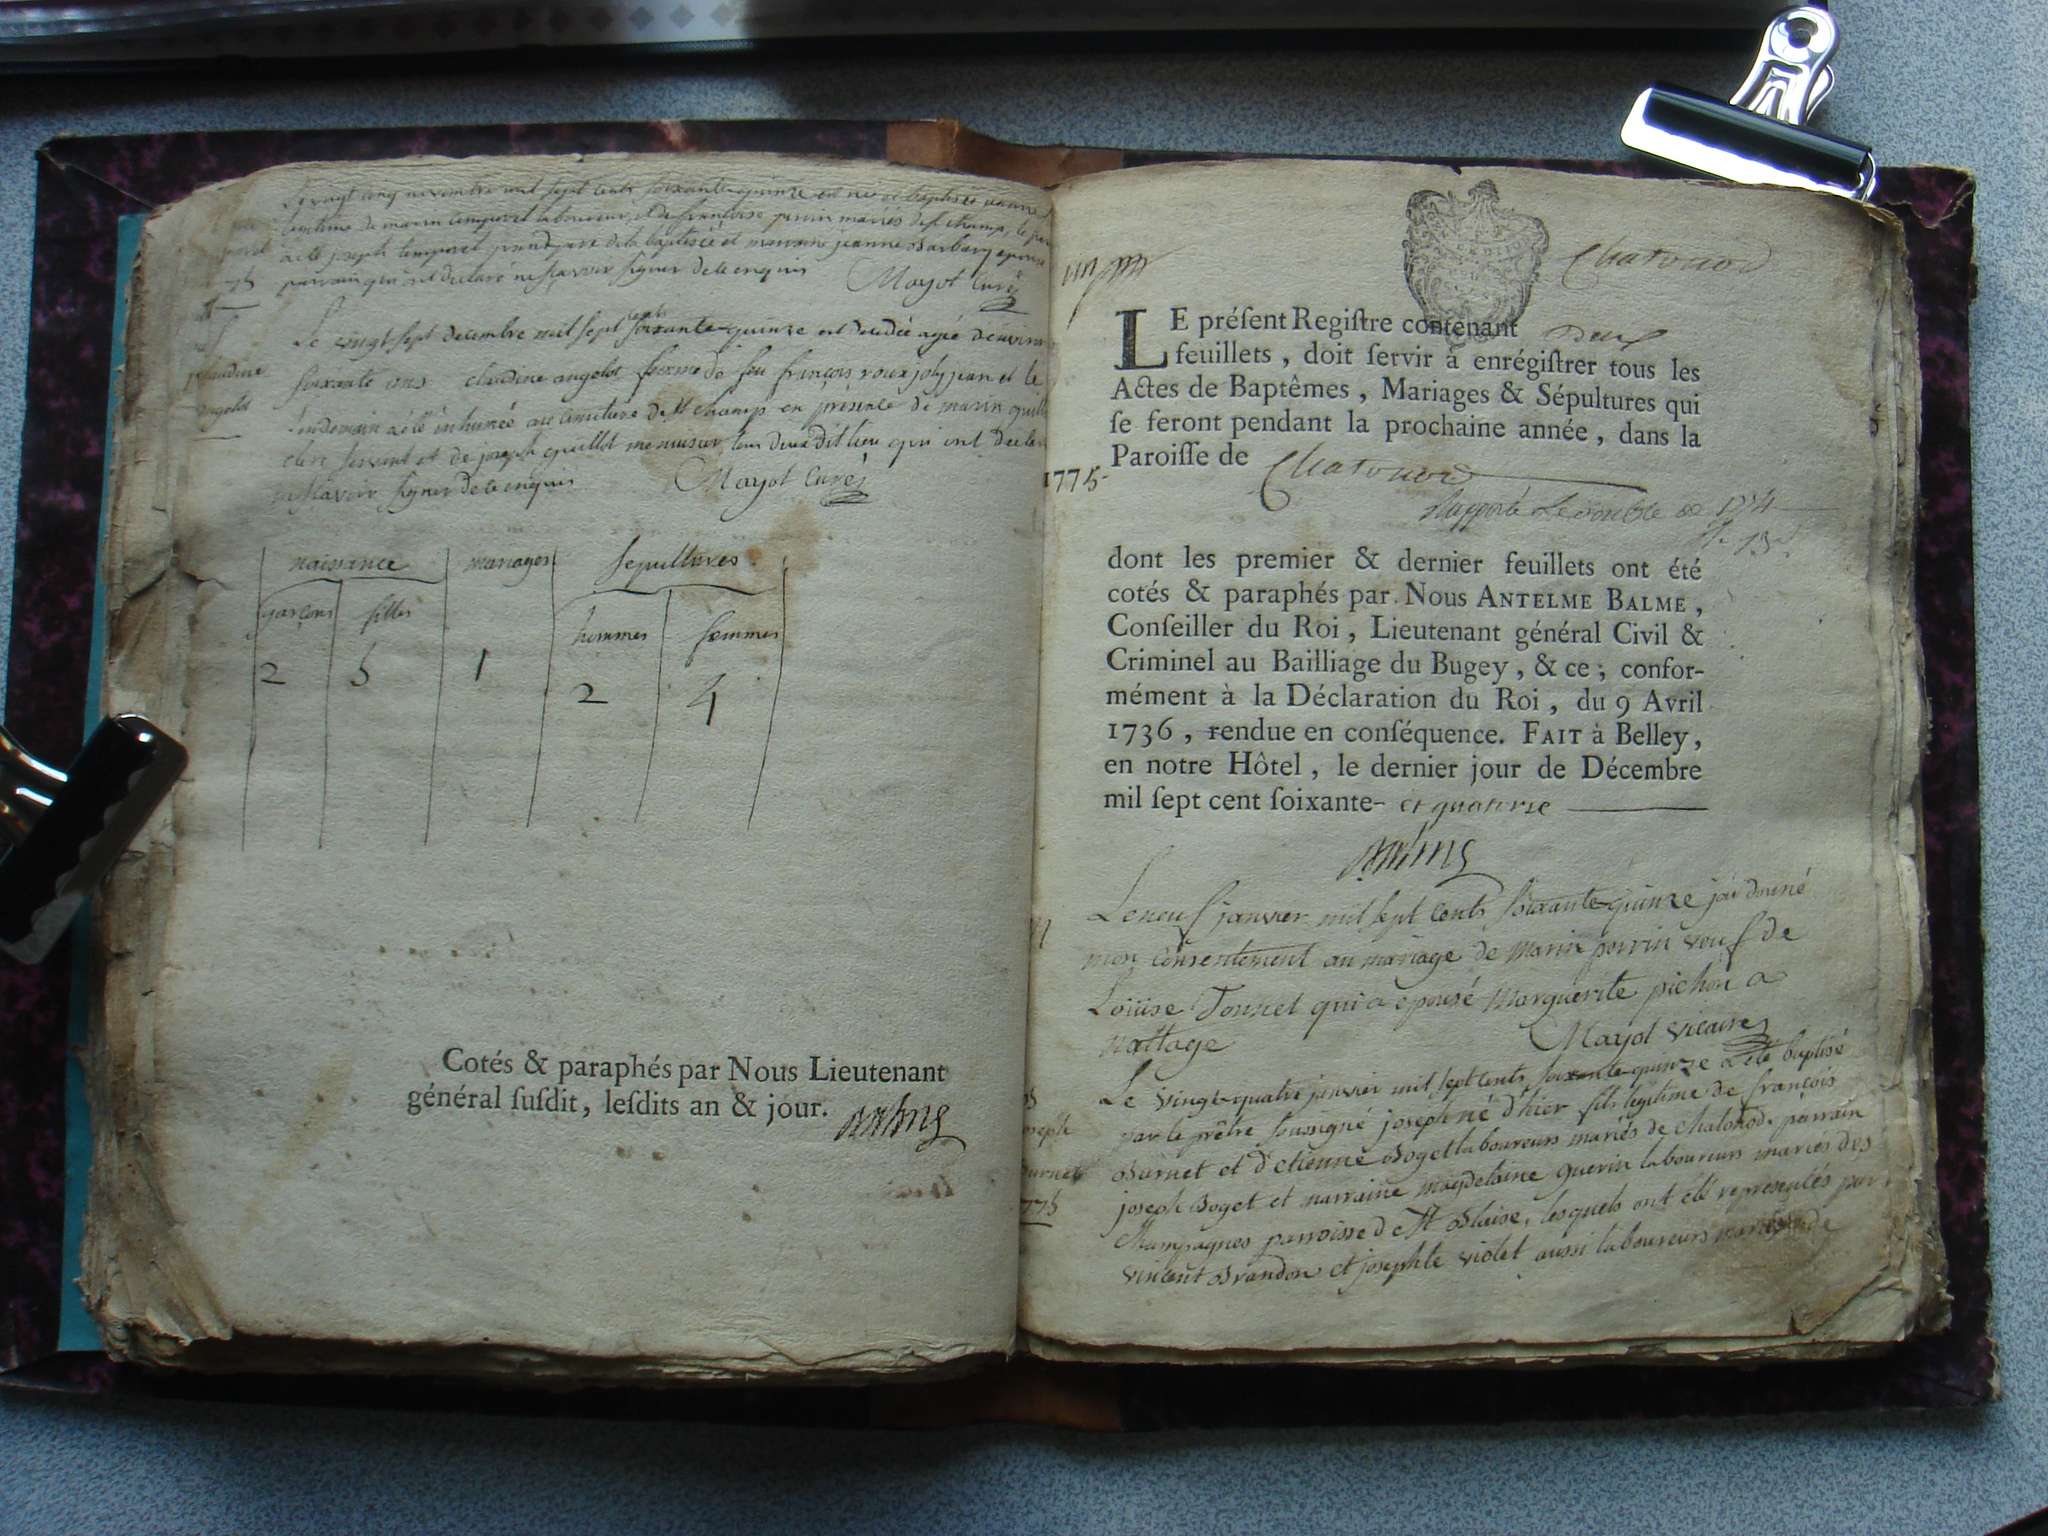 Le vingt cinq novembre mil sept cents soixante quinze est née et baptisée
legitime de marin temporel laboureur et de françoise perrin mariés de st champ, le
a été joseph temporel grand pere de la baptisée et marraine jeanne Barbary
parrain qui ont declaré ne sçavoir signer de ce enquis Mayot Curé
75
Le vingt sept decembre mil sept cents soixante quinze est decedée agée d'environ
claudine
angelot
soixante ans claudine angelot femme de feu françois roux joly jean et le
lendemain a été inhumée au cimetiere de st champ en presence de marin
clerc servant et de joseph guillot menuisier tous deux dit lieu qui ont
ne sçavoir signer de ce enquis Mayot Curé
naissance mariages sepultures
garçons filles hommes femmes
2 5 1 2 4
Cotés & paraphés par Nous Lieutenant
général suſdit, leſdits an & jour.
Chatonod
LE préſent Regiſtre contenant deux
feuillets, doit ſervir à enrégiſtrer tous les
Actes de Baptêmes, Mariages & Sépultures qui
ſe feront pendant la prochaine année, dans la
Paroiſſe de Chatonod
1775
Rapporté Le double de 1774
dont les premier & dernier feuillets ont été
cotés & paraphés par Nous ANTELME BALME,
Conſeiller du Roi, Lieutenant général Civil &
Criminel au Bailliage du Bugey, & ce; confor-
mément à la Déclaration du Roi, du 9 Avril
1736, rendue en conſéquence. FAIT à Belley,
en notre Hôtel, le dernier jour de Décembre
mil ſept cent ſoixante- et quatorze
Le neuf janvier mil sept cents soixante quinze jai donné
mon consentement au mariage de marin perrin veuf de
Loüise Tonnel qui a epousé Marguerite pichon a
nattage Mayot vicaire
Le vingt-quatre janvier mil sept cents soixante-quinze a été baptisé
par le prêtre soussigné joseph né d'hier fils legitime de françois
joseph
Burnet
Burnet et d'etienne Boget laboureurs mariés de chatonod. parrain
joseph Boget et marraine magdelaine Guerin laboureurs mariés des
1775
Champagnes parroisse de st Blaise, lesquels ont été representés par
vincent Brandon et josephte violet aussi laboureurs mariés de